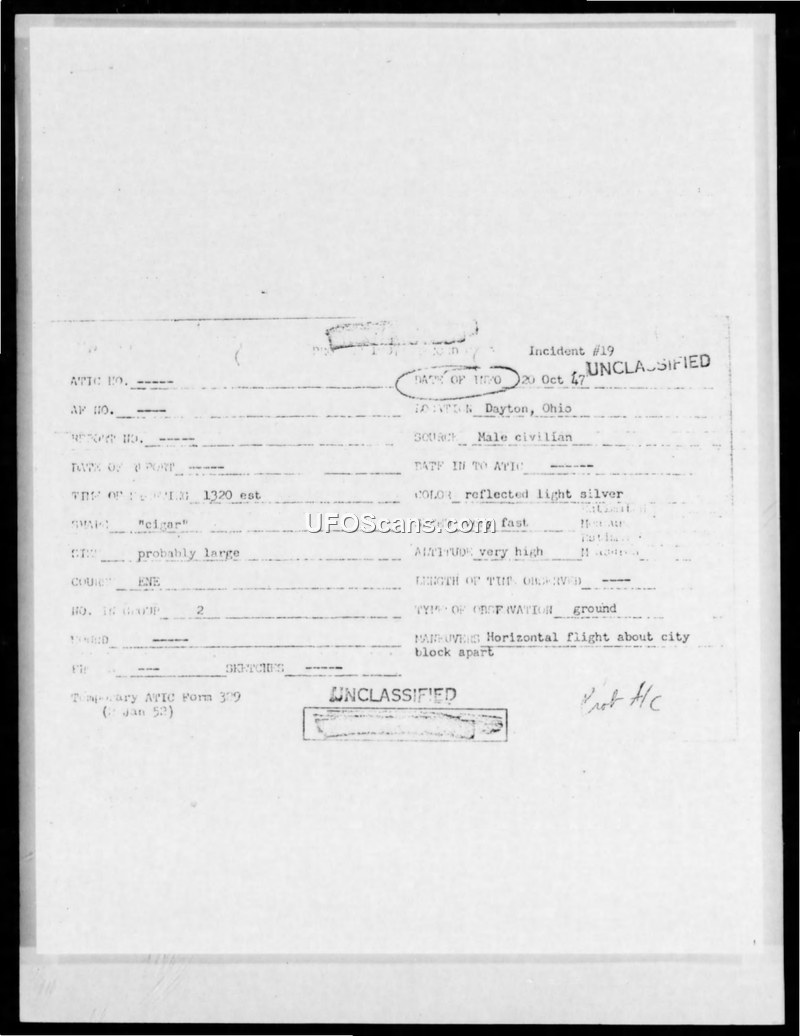 Incident #19
UNCLASSIFIED
ATIC NO. ----- DATE OF INFO 20 Oct 47
AF NO. ---- LOCATION Dayton, Ohio
REPORT NO. ----- SOURCE Male civilian
DATE OF REPORT ----- DATE IN TO ATIC ------
TIME OF SIGHTING 1320 est COLOR reflected light silver
SHAPE "cigar" fast
UFOScans.com
SIZE probably large ALTITUDE very high
COURSE ENE LENGTH OF TIME OBSERVED ----
NO. IN GROUP 2 TYPE OF OBSERVATION ground
SOUND ----- MANEUVERS Horizontal flight about city
block apart
--- SKETCHES -----
Temporary ATIC Form 329
(2 Jan 52)
UNCLASSIFIED
Prob A/C